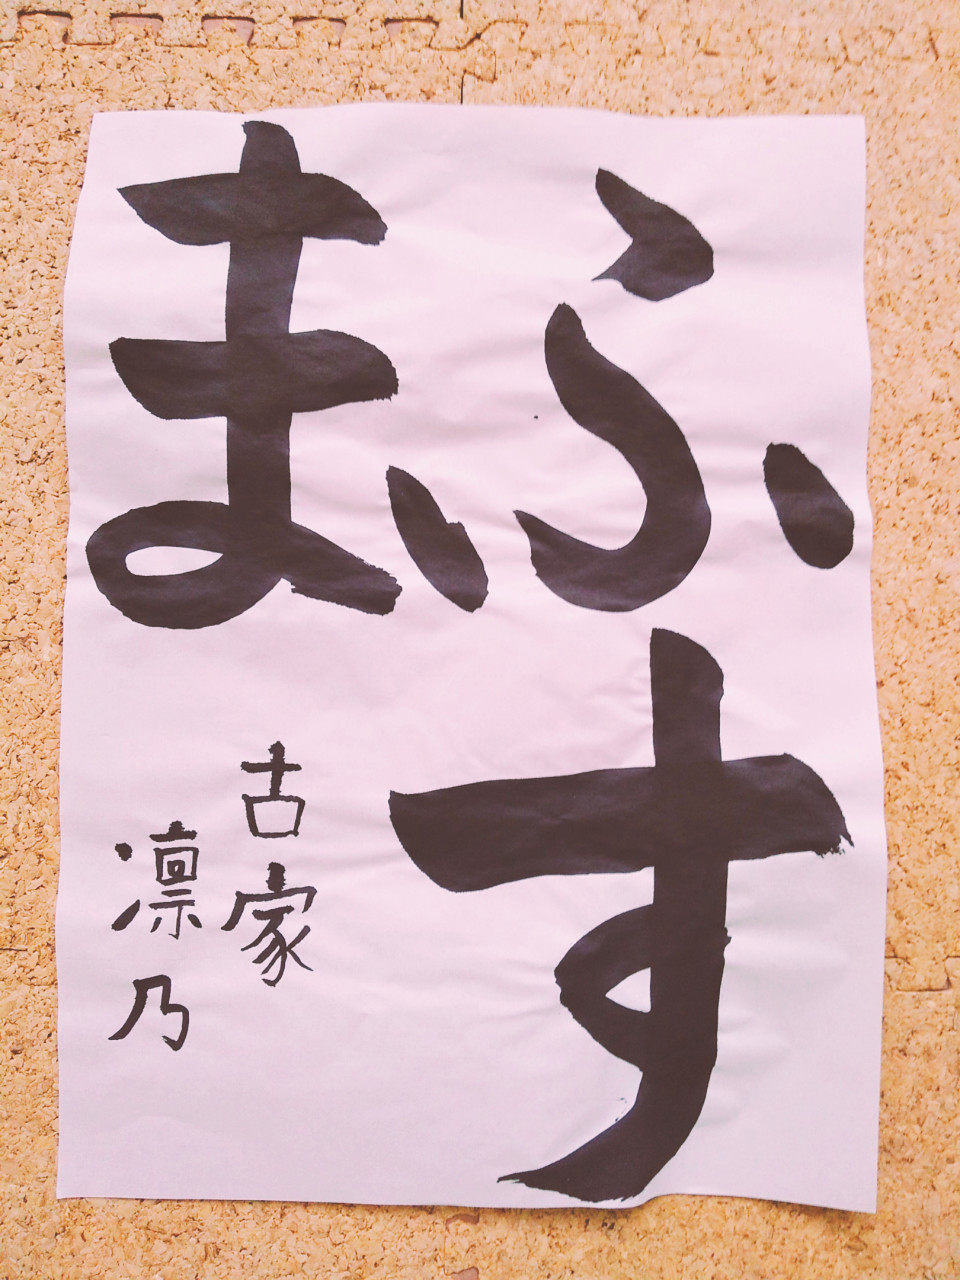 ふす
ま
古家
凛乃